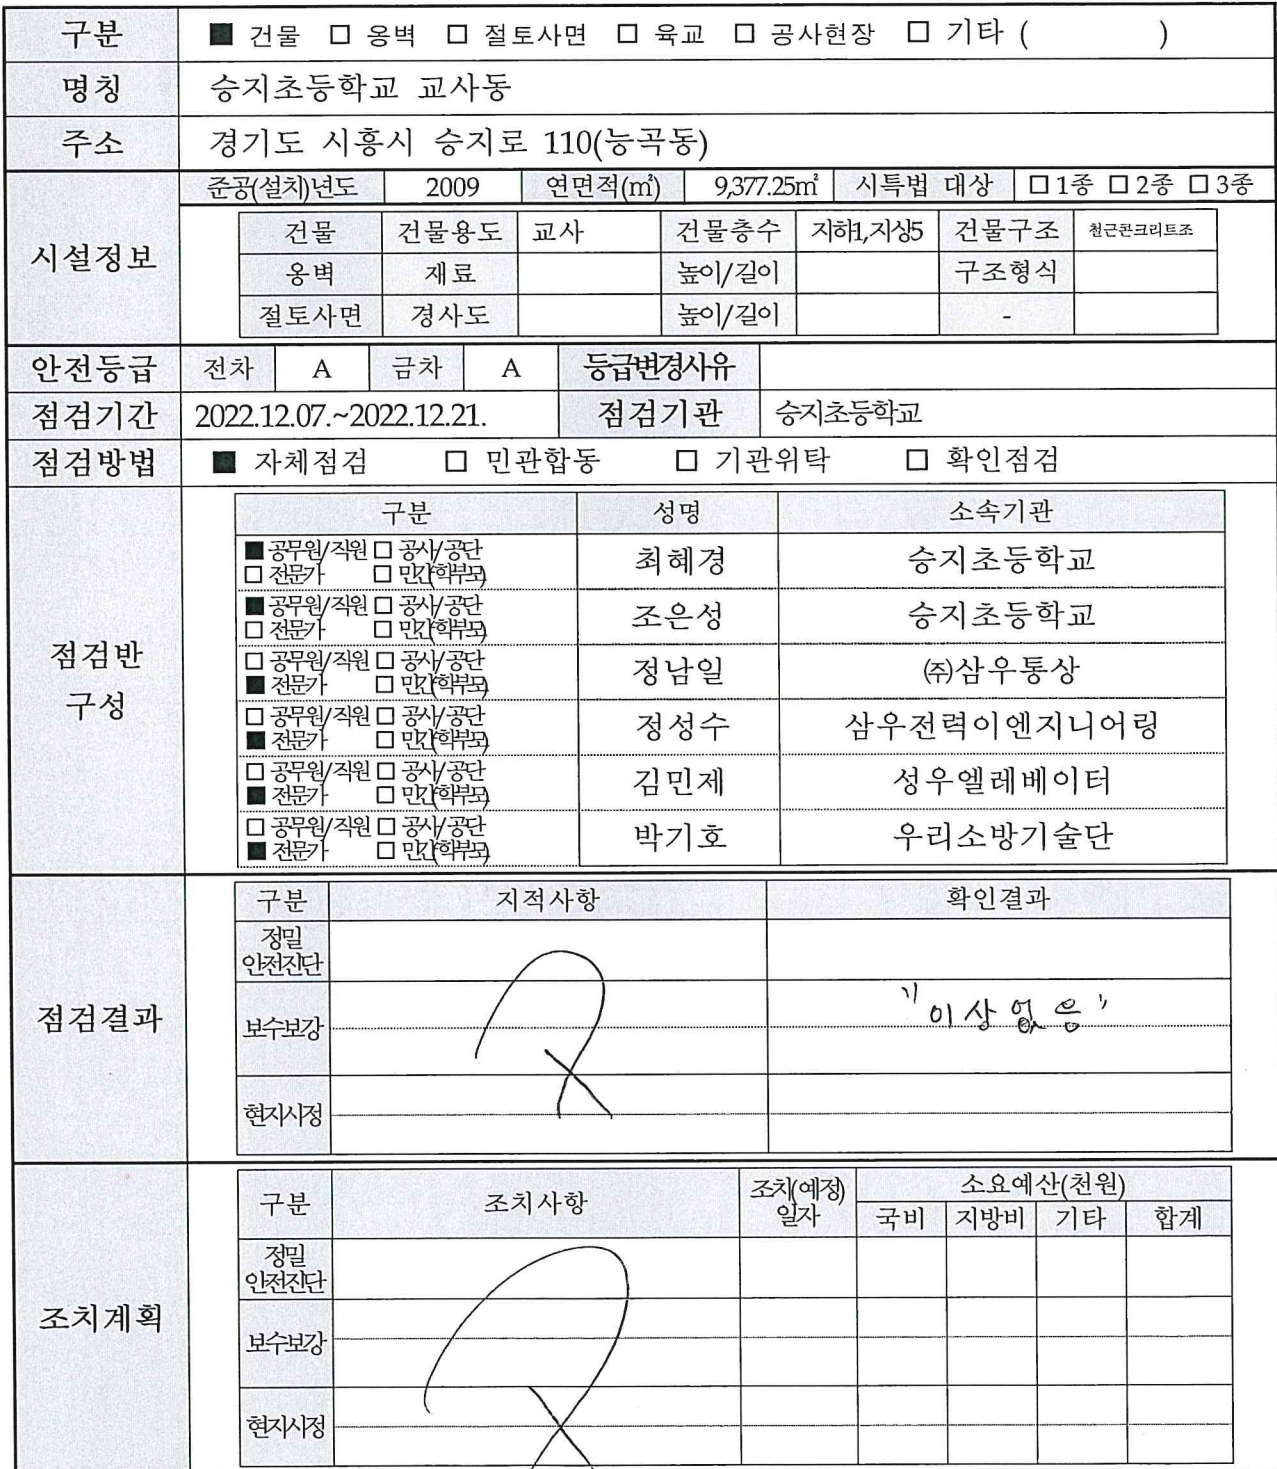 구분 ■ 건물 □ 옹벽 □ 절토사면 □ 육교 □ 공사현장 □ 기타 ( )
명칭 승지초등학교 교사동
주소 경기도 시흥시 승지로 110(능곡동)
시설정보
준공(설치)년도 2009 연면적(㎡) 9,377.25㎡ 시특법 대상 □ 1종 □ 2종 □ 3종
건물 건물용도 교사 건물층수 지하1,지상5 건물구조 철근콘크리트조
옹벽 재료 높이/길이 구조형식
절토사면 경사도 높이/길이 -
안전등급 전차 A 금차 A 등급변경사유
점검기간 2022.12.07.~2022.12.21. 점검기관 승지초등학교
점검방법 ■ 자체점검 □ 민관합동 □ 기관위탁 □ 확인점검
점검반
구성
구분 성명 소속기관
■ 공무원/직원 □ 공사/공단
□ 전문가 □ 민간(학부모)
최혜경 승지초등학교
■ 공무원/직원 □ 공사/공단
□ 전문가 □ 민간(학부모)
조은성 승지초등학교
□ 공무원/직원 □ 공사/공단
■ 전문가 □ 민간(학부모)
정남일 ㈜삼우통상
□ 공무원/직원 □ 공사/공단
■ 전문가 □ 민간(학부모)
정성수 삼우전력이엔지니어링
□ 공무원/직원 □ 공사/공단
■ 전문가 □ 민간(학부모)
김민제 성우엘레베이터
□ 공무원/직원 □ 공사/공단
■ 전문가 □ 민간(학부모)
박기호 우리소방기술단
점검결과
구분 지적사항 확인결과
정밀
안전진단
보수보강 "이상없음"
현지시정
조치계획
구분 조치사항 조치(예정)
일자 소요예산(천원)
국비 지방비 기타 합계
정밀
안전진단
보수보강
현지시정